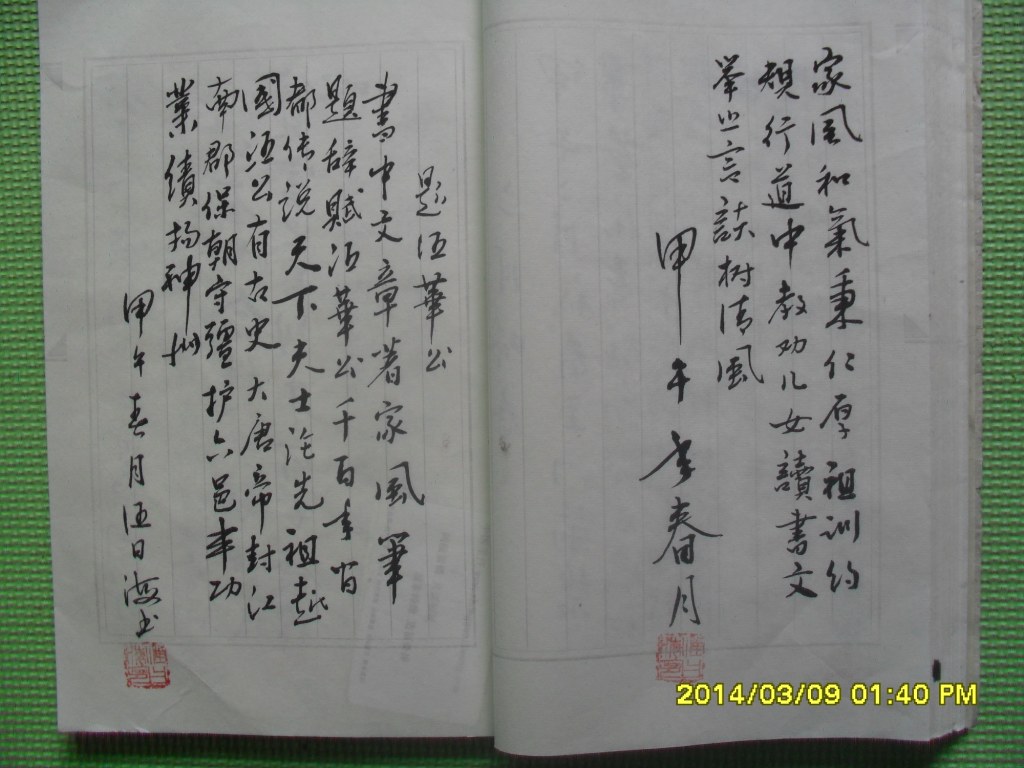 家風和氣秉仁厚祖訓約
規行道中教劝儿女讀書文
举止言談树清風
甲午年春月
題汪華公
書中文章著家風筆
題辞賦汪華公千百年皆
都传说天下夫士注先祖越
國汪公有古史大唐帝封江
南郡保朝守疆护六邑丰功
業績扬神州
甲午春月汪日海书
2014/03/09 01:40 PM